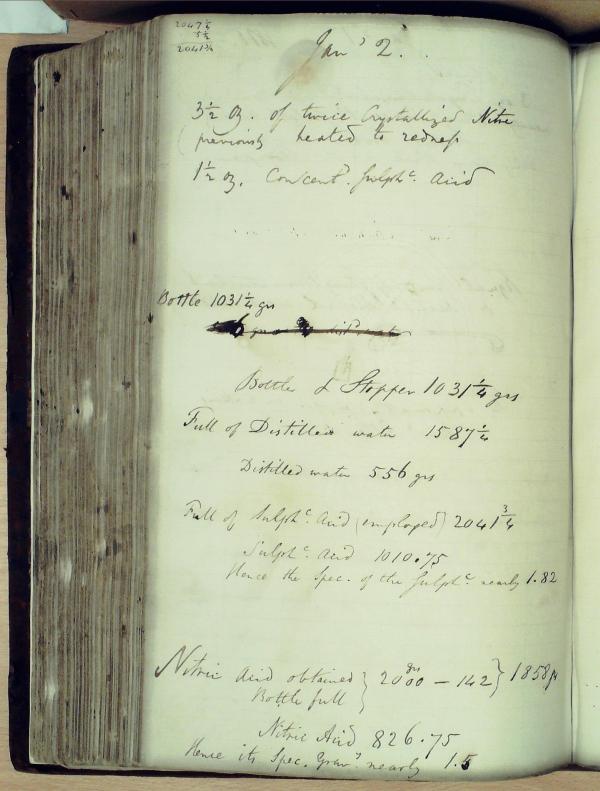 2047 1/4
5 1/2
2041 3/4
Jan' 2.
3 1/2 oz. of twice Crystallized Nitre
(previously heated to redness
1 1/2 oz. Concent. Sulph.c Acid
Bottle 1031 1/4 grs
Bottle & Stopper 1031 1/4 grs
Full of Distilled water 1587 1/4
Distilled water 556 grs
Full of Sulph.c Acid (employed) 2041 3/4
Sulph.c Acid 1010.75
Hence the Spec. of the Sulph.c nearly 1.82
Nitric Acid obtained } 2000 grs — 142 } 1858 grs
Bottle full
Nitric Acid 826.75
Hence its Spec. Grav.y nearly 1.5